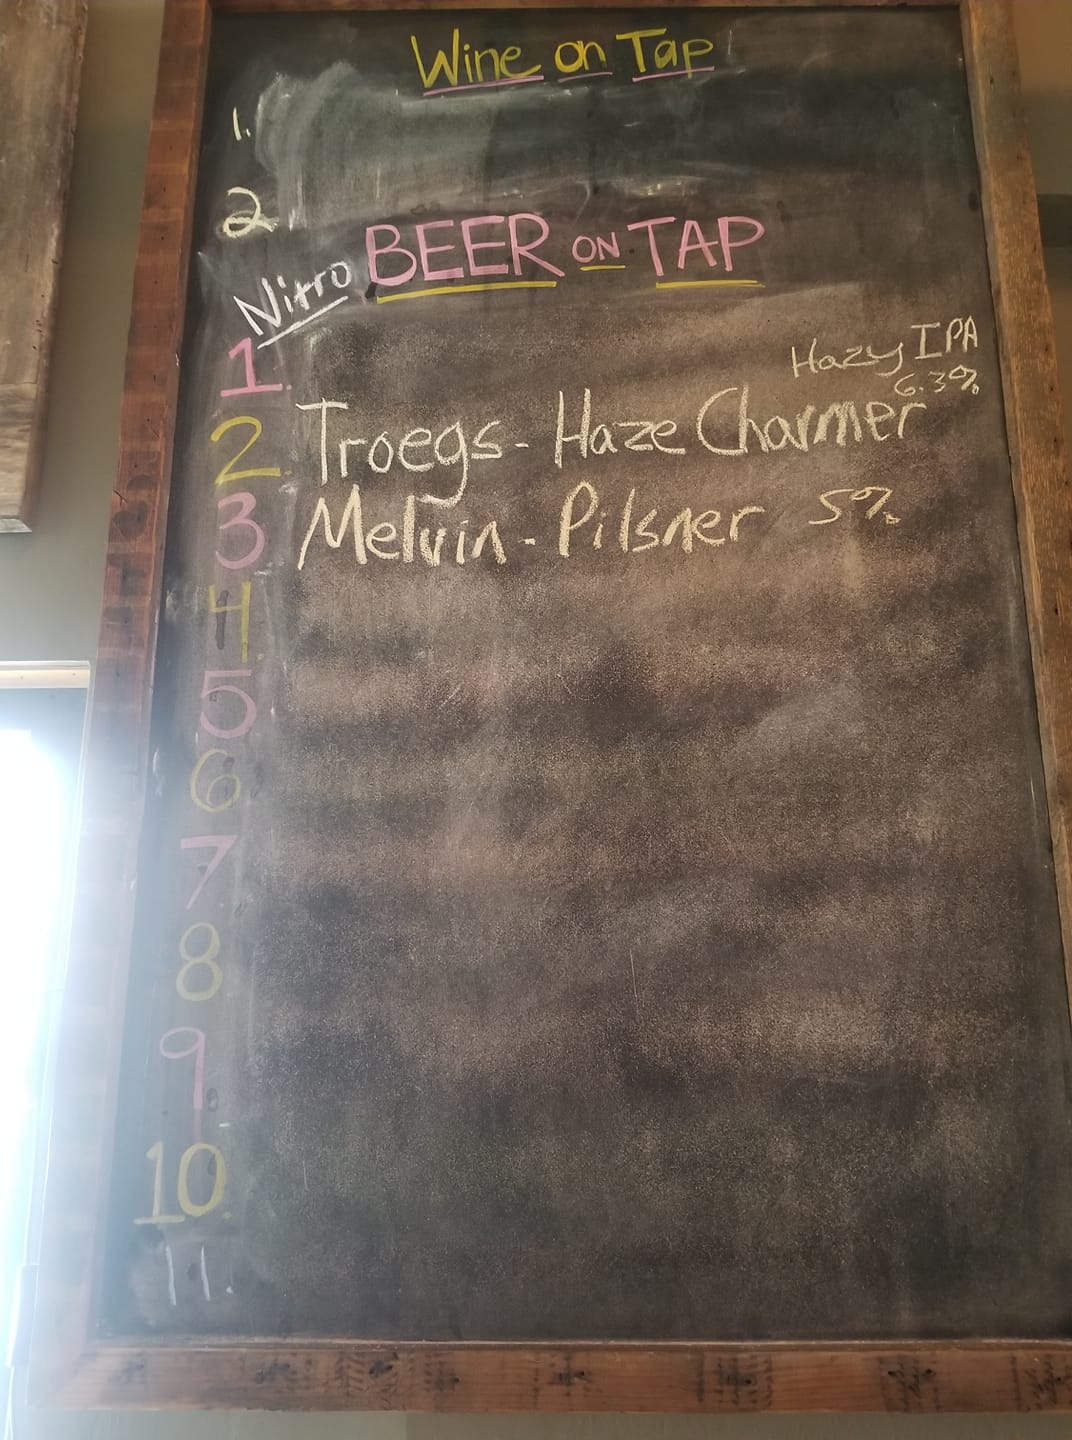 Wine on Tap
1.
2
BEER ON TAP
Nitro
1.
Hazy IPA
6.3%
2. Troegs - Haze Charmer
3. Melvin - Pilsner 5%
4.
5
6
7.
8
9.
10.
11.